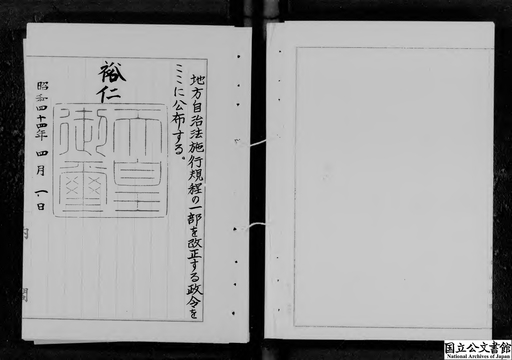 地方自治法施行規程の一部を改正する政令を
ここに公布する。
裕仁
天皇
御璽
昭和四十四年 四月 一日
内閣
国立公文書館
National Archives of Japan